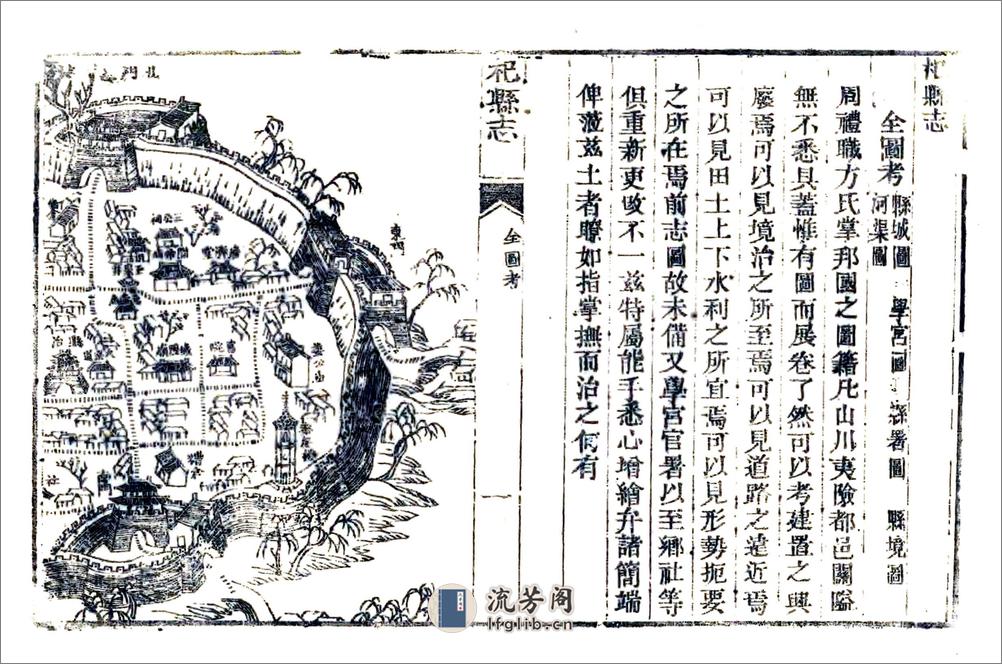 杞縣志
全圖考 縣城圖 學宮圖 縣署圖 縣境圖
河渠圖
周禮職方氏掌邦國之圖籍凡山川夷險都邑關隘
無不悉具蓋惟有圖而展卷了然可以考建置之興
廢焉可以見境治之所至焉可以見道路之遠近焉
可以見田土上下水利之所宜焉可以見形勢扼要
之所在焉前志圖故未備又學宮官署以至鄉社等
俱重新更改不一茲特屬能手悉心增繪弁諸簡端
俾蒞茲土者瞭如指掌撫而治之何有
杞縣志
全圖考
一
北門
三公祠
城隍廟
察院
縣治
流芳阁
lfglib.cn